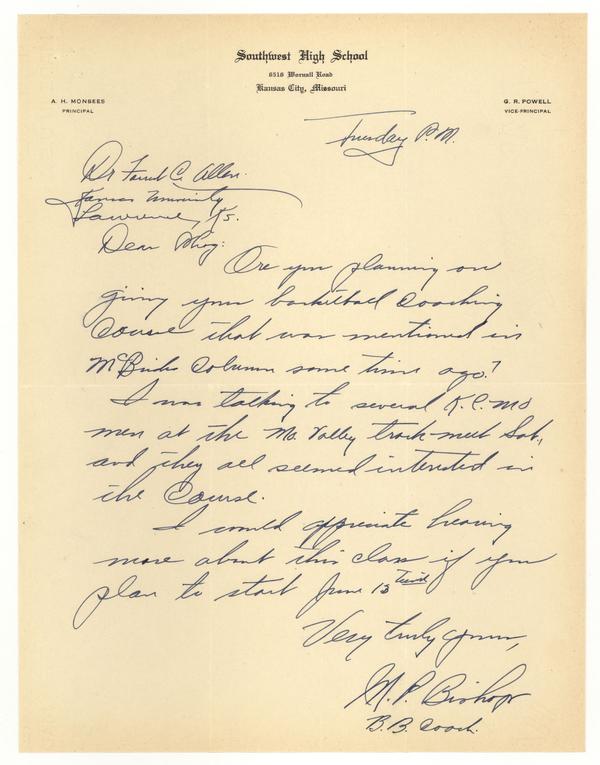 Southwest High School
6518 Wornall Road
Kansas City, Missouri
A. H. MONSEES
PRINCIPAL
G. R. POWELL
VICE-PRINCIPAL
Tuesday P.M.
Dr Forrest C. Allen.
Kansas University
Lawrence, Ks.
Dear Phog:
Are you planning on
giving your basketball coaching
course that was mentioned in
McBrides Column some time ago?
I was talking to several K.C. Mo
men at the Mo. Valley track meet Sat,
and they all seemed interested in
the Course.
I would appreciate hearing
more about this class if you
plan to start June 13
Very truly yours,
M. P. Bishop
B.B. Coach.